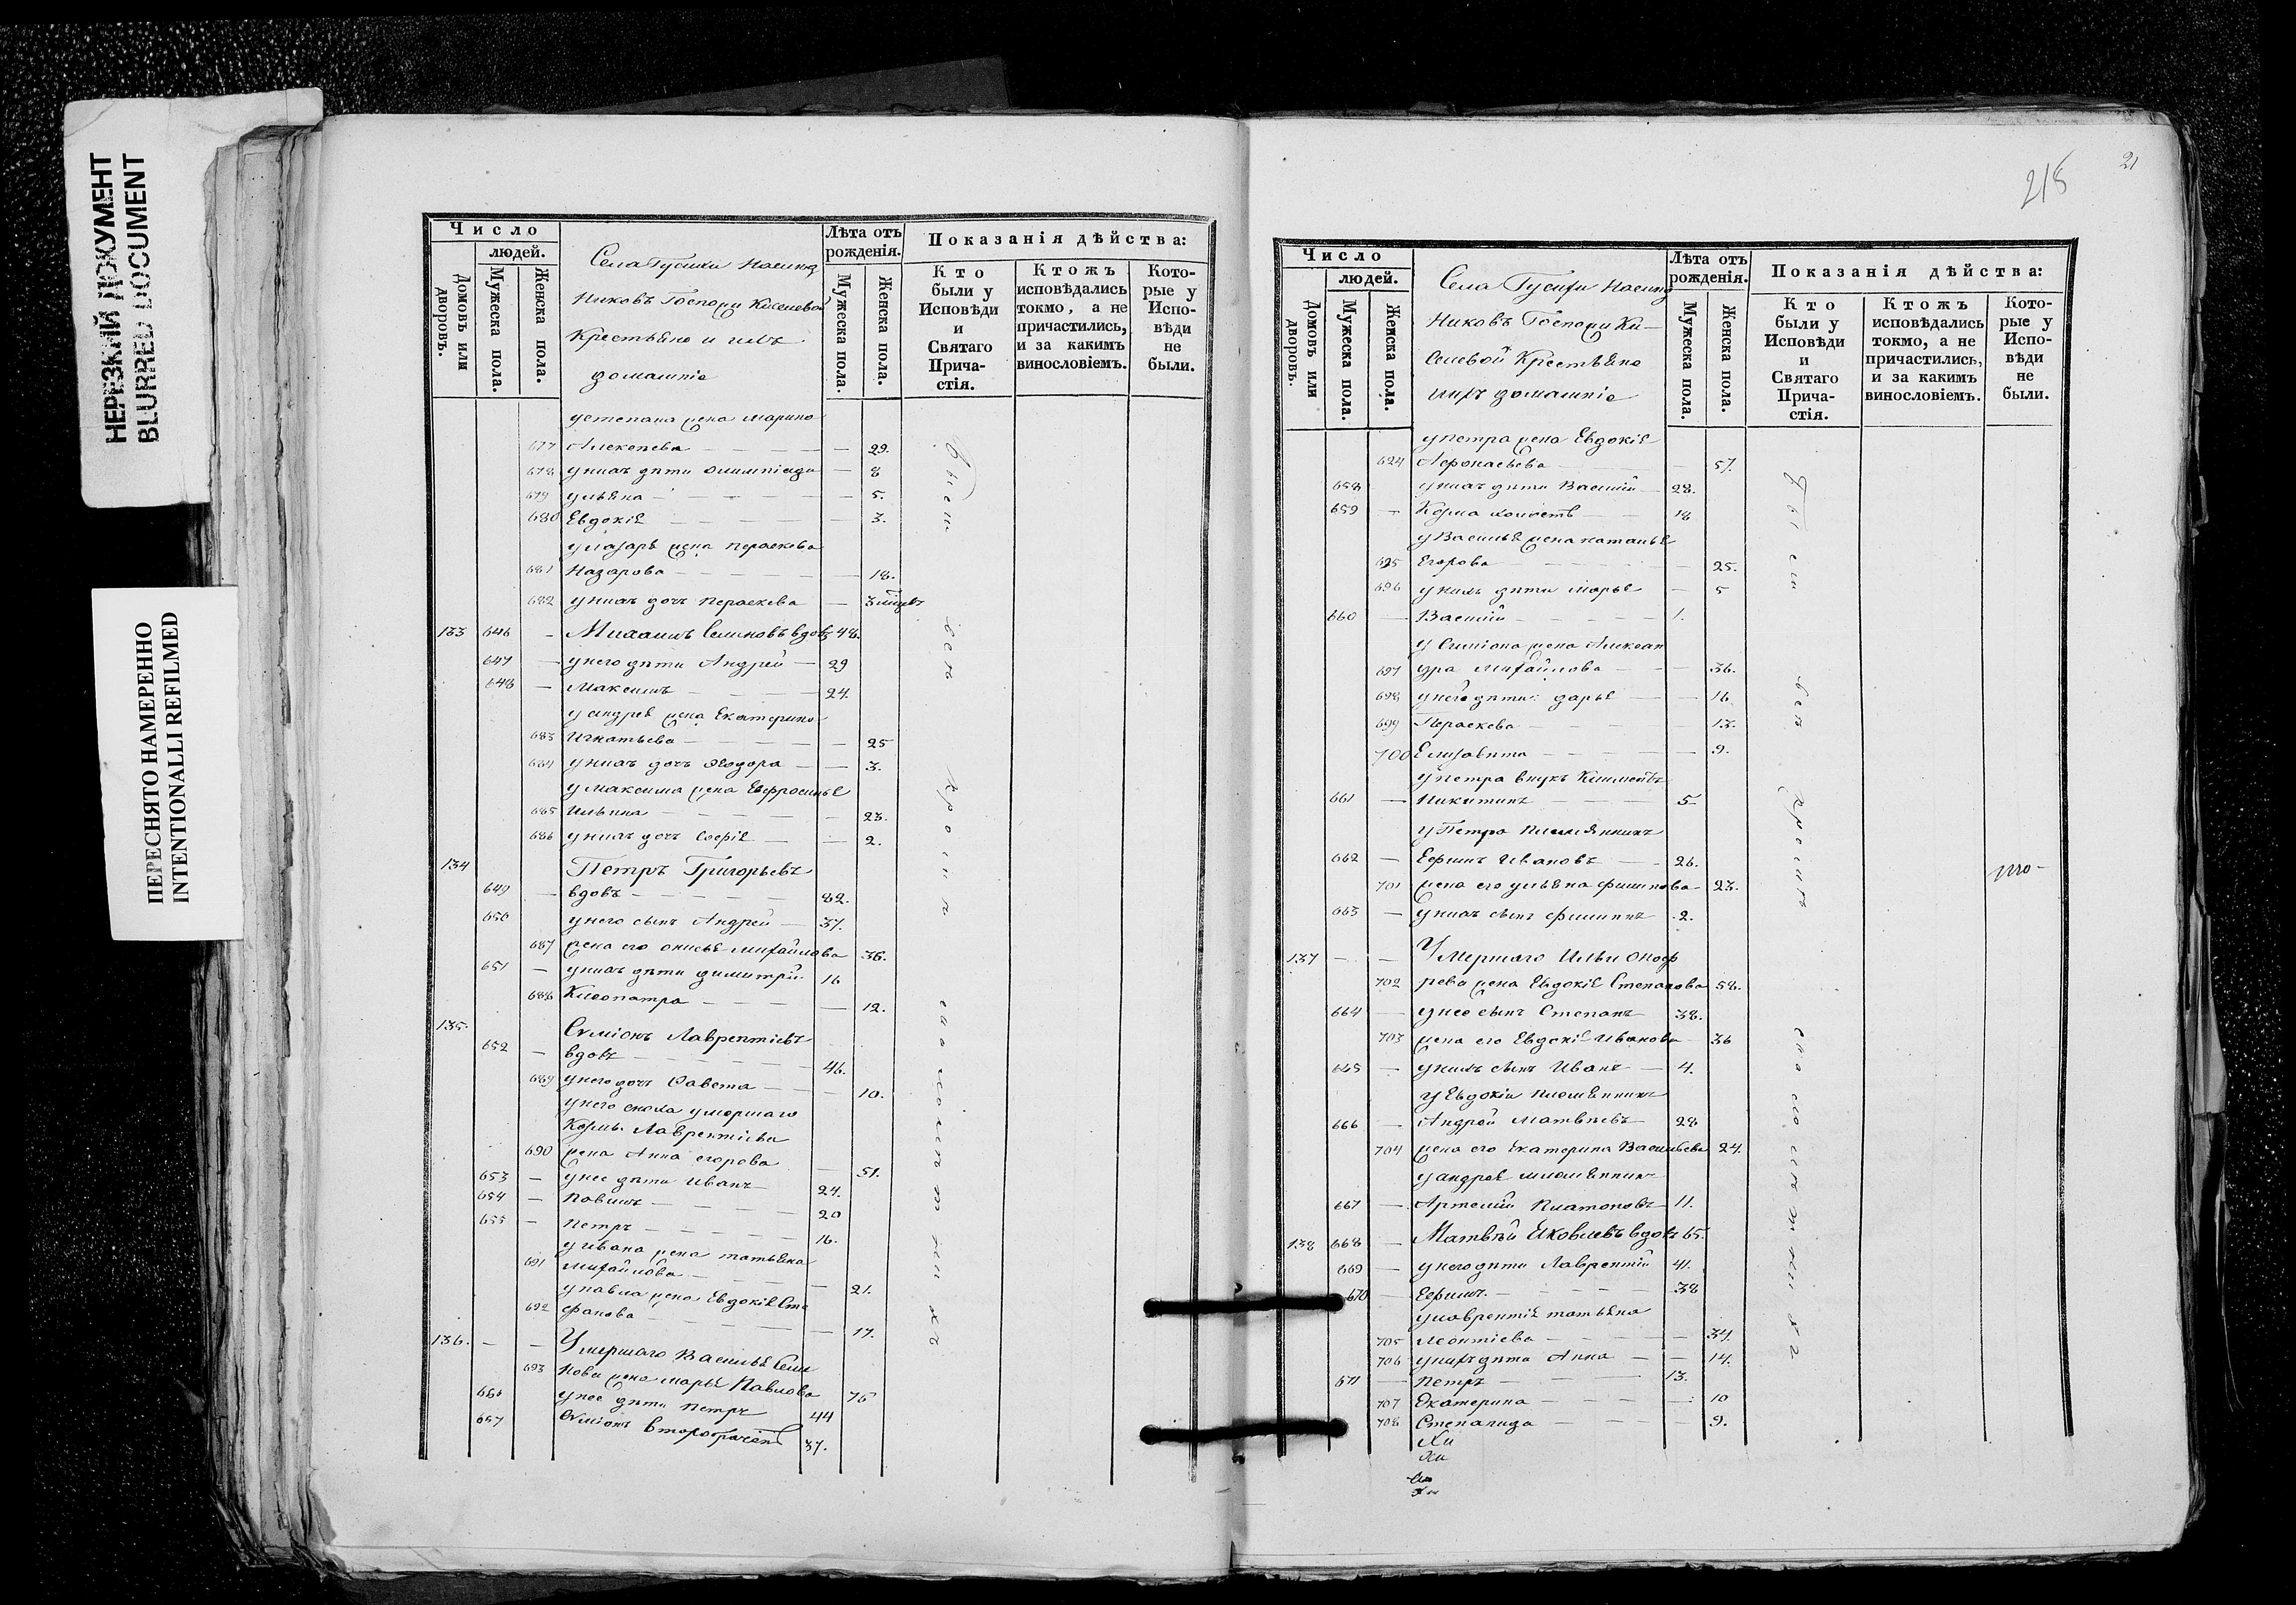 НЕРЕЗКИЙ ДОКУМЕНТ
BLURRED DOCUMENT
ПЕРЕСНЯТО НАМЕРЕННО
INTENTIONALLI REFILMED
Число
людей.
Домовъ или дворовъ.
Мужеска пола.
Женска пола.
Села
Никовъ Госпожи Киселевой
Крестьяно и ихъ
домашніе
Лѣта отъ рожденія.
Мужеска пола.
Женска пола.
Показанія дѣйства:
Кто были у Исповѣди и Святаго Прича-стія.
Ктожъ исповѣдались токмо, а не причастились, и за какимъ винословіемъ.
Кото-рые у Испо-вѣди не были.
устепана жена марина
677 Алексѣева — 29.
678 унихъ дѣти олимпіада — 8
679 ульяна — 5.
680 Евдокіе — 3.
улазаре жена параскева
681 Назарова — 18.
682 унихъ дочь параскева — 3
133 646 — Михаилъ Семиновъ вдовъ 48.
647 — унего дѣти Андрей — 29
648 — Максимъ — 24.
уандрее жена Екатерина
683 Игнатьева — 25
684 унихъ дочь Ѳеодора — 3.
умаксима жена Евфросинье
685 Ильина — 23.
686 унихъ дочь Софіе — 2.
134 Петръ Григорьевъ
649 — вдовъ — 82.
650 унего сынъ Андрей — 37.
687 жена его анисье михайлова 36.
651 — унихъ дѣти димитрій 16
688 Клеопатра — 12.
135. Симіонъ Лаврентіевъ
652 — вдовъ — 46.
689 унего дочь Савета — 10.
унего сноха умершаго
Козмы Лаврентіева
690 жена Анна егорова — 51.
653 — унее дѣти Иванъ 24.
654 — павилъ — 20
655 — петръ — 16.
уивана жена татьяна
691 михайлова — 21.
упавла жена Евдокіе Сте
692 фанова — 17.
136. — — Умершаго Василье Семи
693 нова жена марье Павлова 75
656 унее дѣти петръ 44
657 Симіонъ второбрачей 37.
Были
всѣ
218
21
Число
людей.
Домовъ или дворовъ.
Мужеска пола.
Женска пола.
Села
Никовъ Госпожи Ки-
селевой Крестьяно
ихъ домашніе
Лѣта отъ рожденія.
Мужеска пола.
Женска пола.
Показанія дѣйства:
Кто были у Исповѣди и Святаго Прича-стія.
Ктожъ исповѣдались токмо, а не причастились, и за какимъ винословіемъ.
Кото-рые у Испо-вѣди не были.
упетра жена Евдокіе
694 Афонасьева — 57.
658 унихъ дѣти Василій — 28.
659 — Козма холостъ — 18
уВасилье жена наталье
695 Егорова — 25.
696 унихъ дѣти марье — 5
660 — Василій — 1.
у Симіона жена Александ
697 дра Михайлова — 36.
698 унего дѣти: дарье — 16
699 Параскева — 13.
700 Елизавѣта — 9.
упетра внукъ Климентъ
661 — Никитинъ — 5
уПетра племянникъ
662 — Ефимъ Ивановъ — 26.
701 жена его ульяна филипова — 23.
663 — унихъ сынъ филиппъ 2.
137 — — Умершаго Ильи Оноф
702 рева жена Евдокіе Степанова 58.
664 — унее сынъ Степанъ 38.
703 жена его Евдокіе Иванова 36
665 — унихъ сынъ Иванъ — 4.
у Евдокіи племянникъ
666 — Андрей Матвѣевъ 28
704 жена его Екатерина Васильева 24.
уандрее племянникъ
667 — Артемій Платоновъ 11.
138 668 — Матвѣй Яковлевъ вдовъ 65.
669 — унего дѣти Лаврентій 41.
670 — Ефимъ — 38
улаврентіе татьяна
705 леонтіева — 34.
706 унихъ дѣти Анна — 14.
671 — петръ — 13.
707 Екатерина — 10
708 Степанида — 9.
Были
всѣ